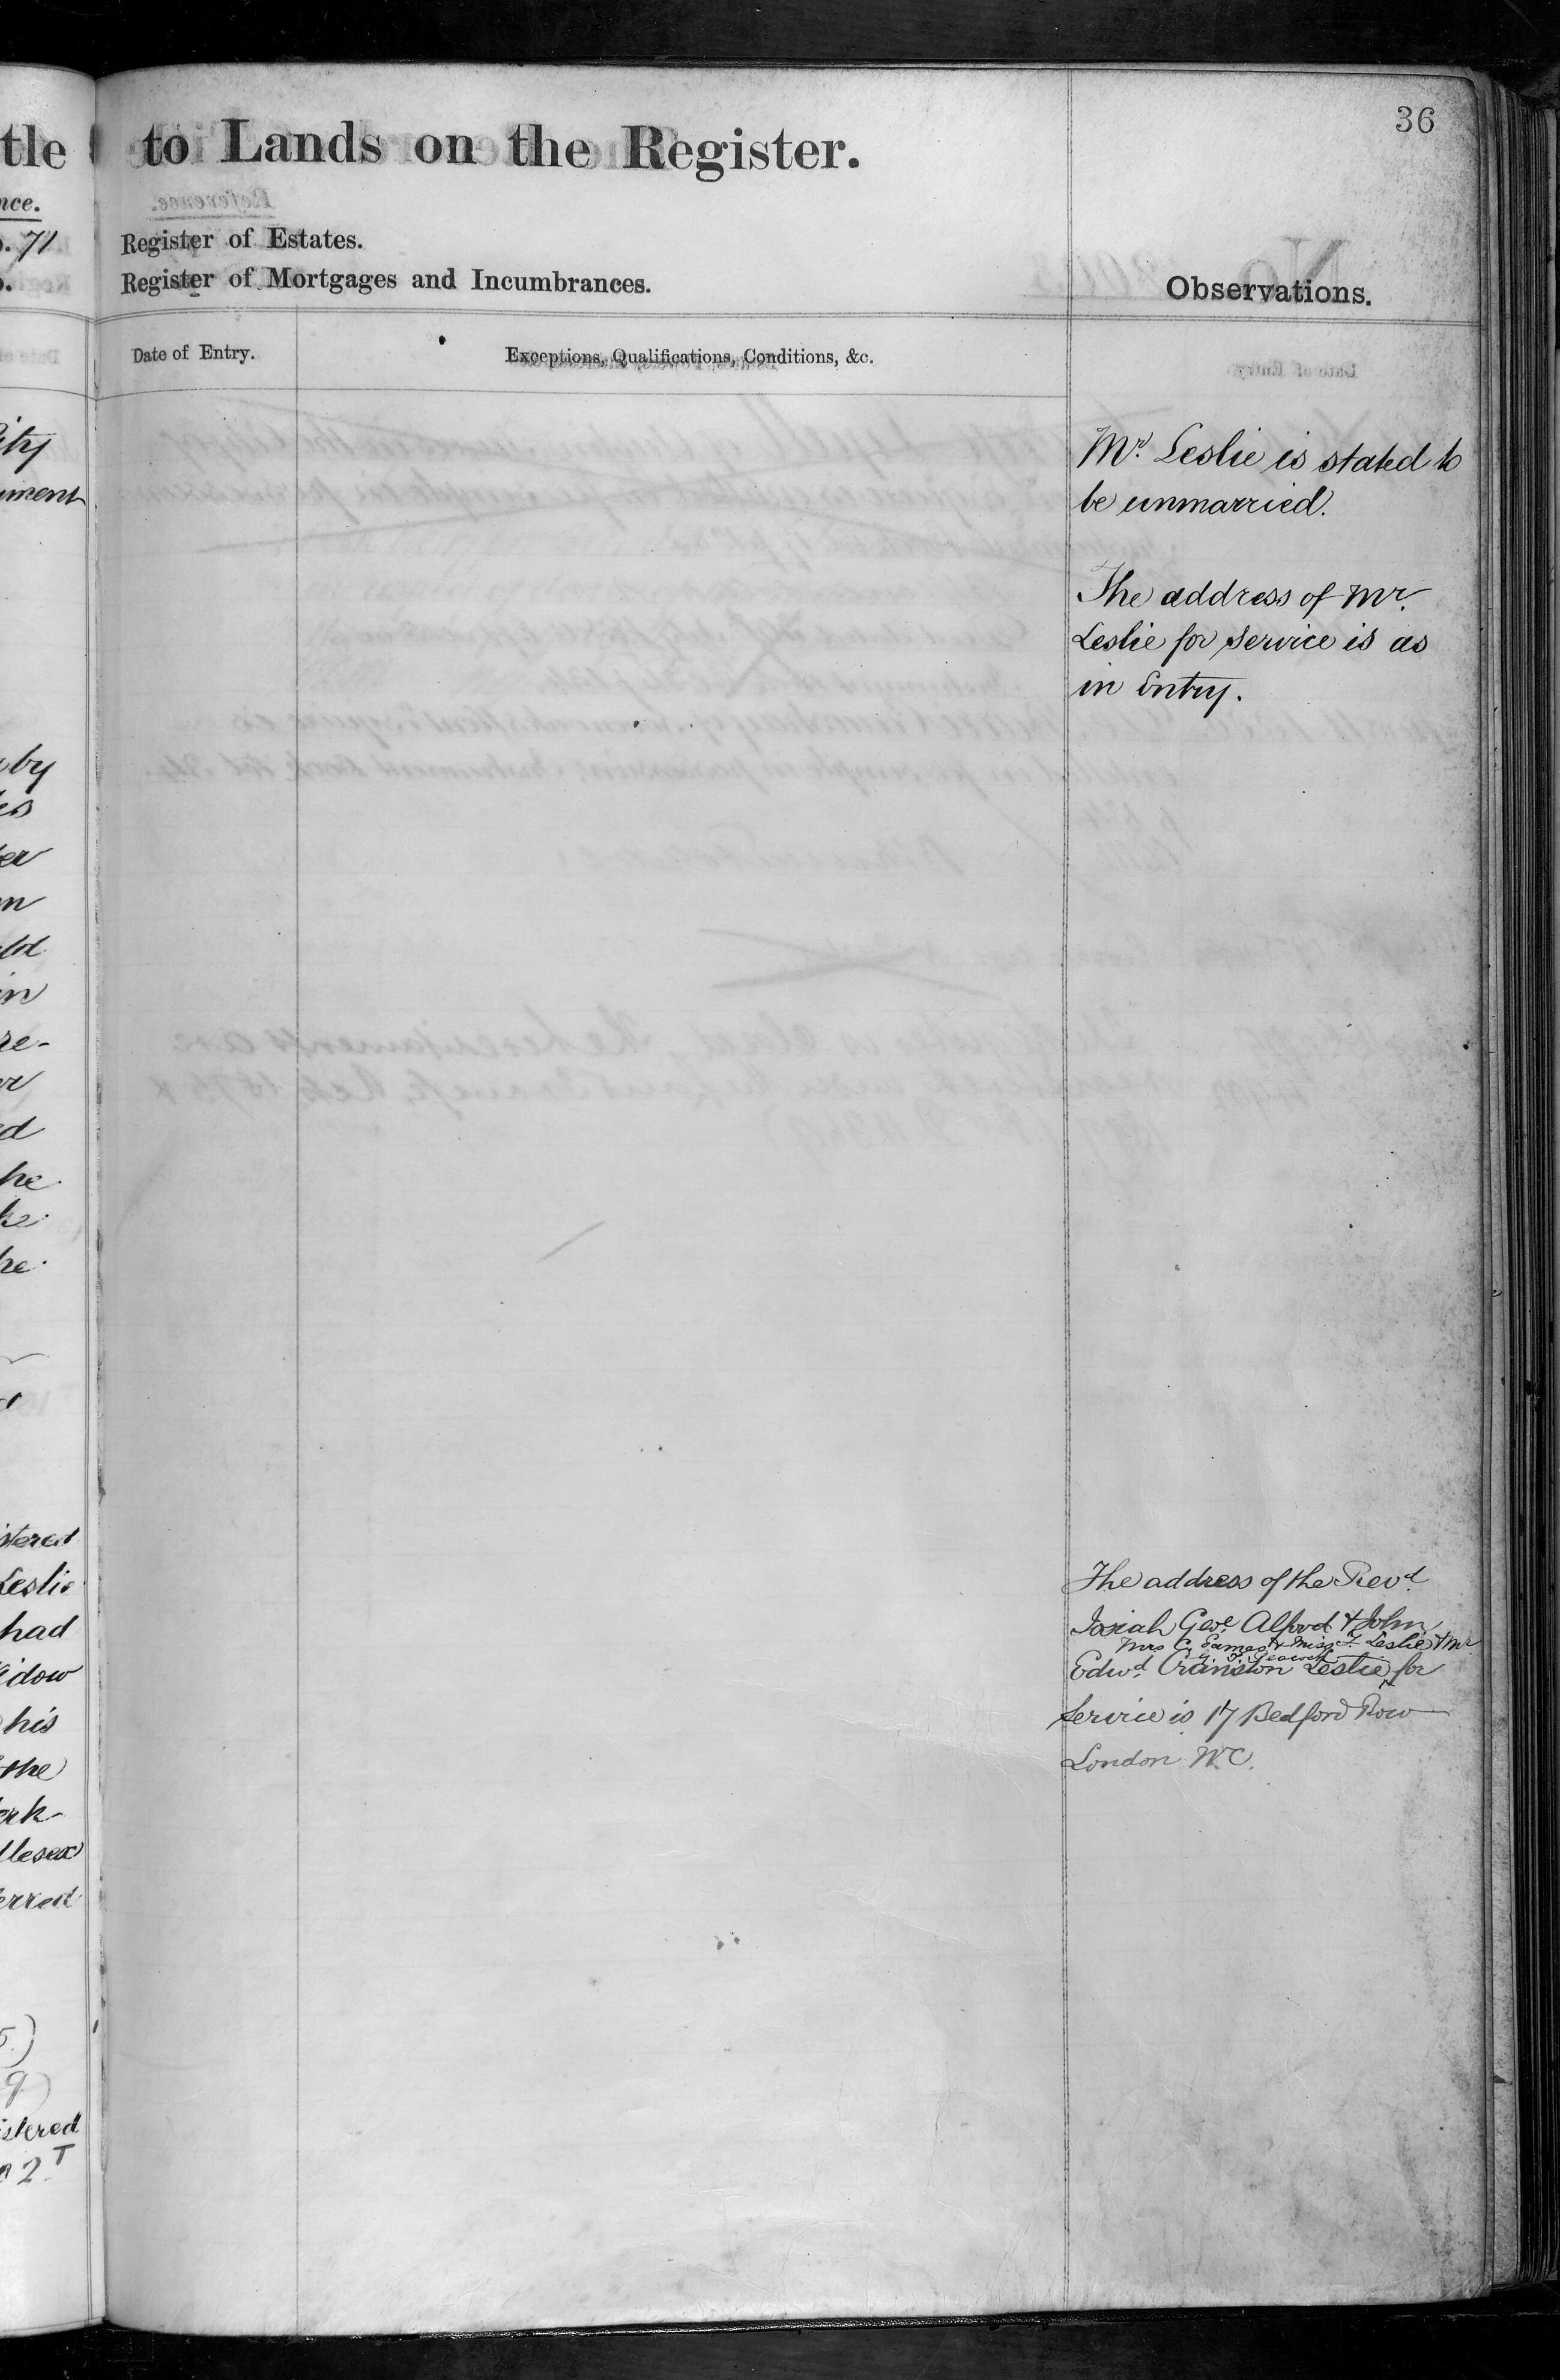 tle
nce.
71
ity
ument
by
es
er
m
ld
in
re-
or
ed
he
he
stered
Leslie
had
idow
his
the
erk-
dlesex
erred
5.)
9)
istered
2.T
36
to Lands on the Register.
Register of Estates.
Register of Mortgages and Incumbrances.
Observations.
Date of Entry.
Exceptions, Qualifications, Conditions, &c.
Mr. Leslie is stated to
be unmarried.
The address of Mr.
Leslie for Service is as
in Entry.
The address of the Revd.
Josiah Geoe. Alford & John
Mrs C. Eames & Miss F. Leslie & Mr
G. F. Peacock
Edwd. Cranston Leslie for
Service is 17 Bedford Row
London W.C.